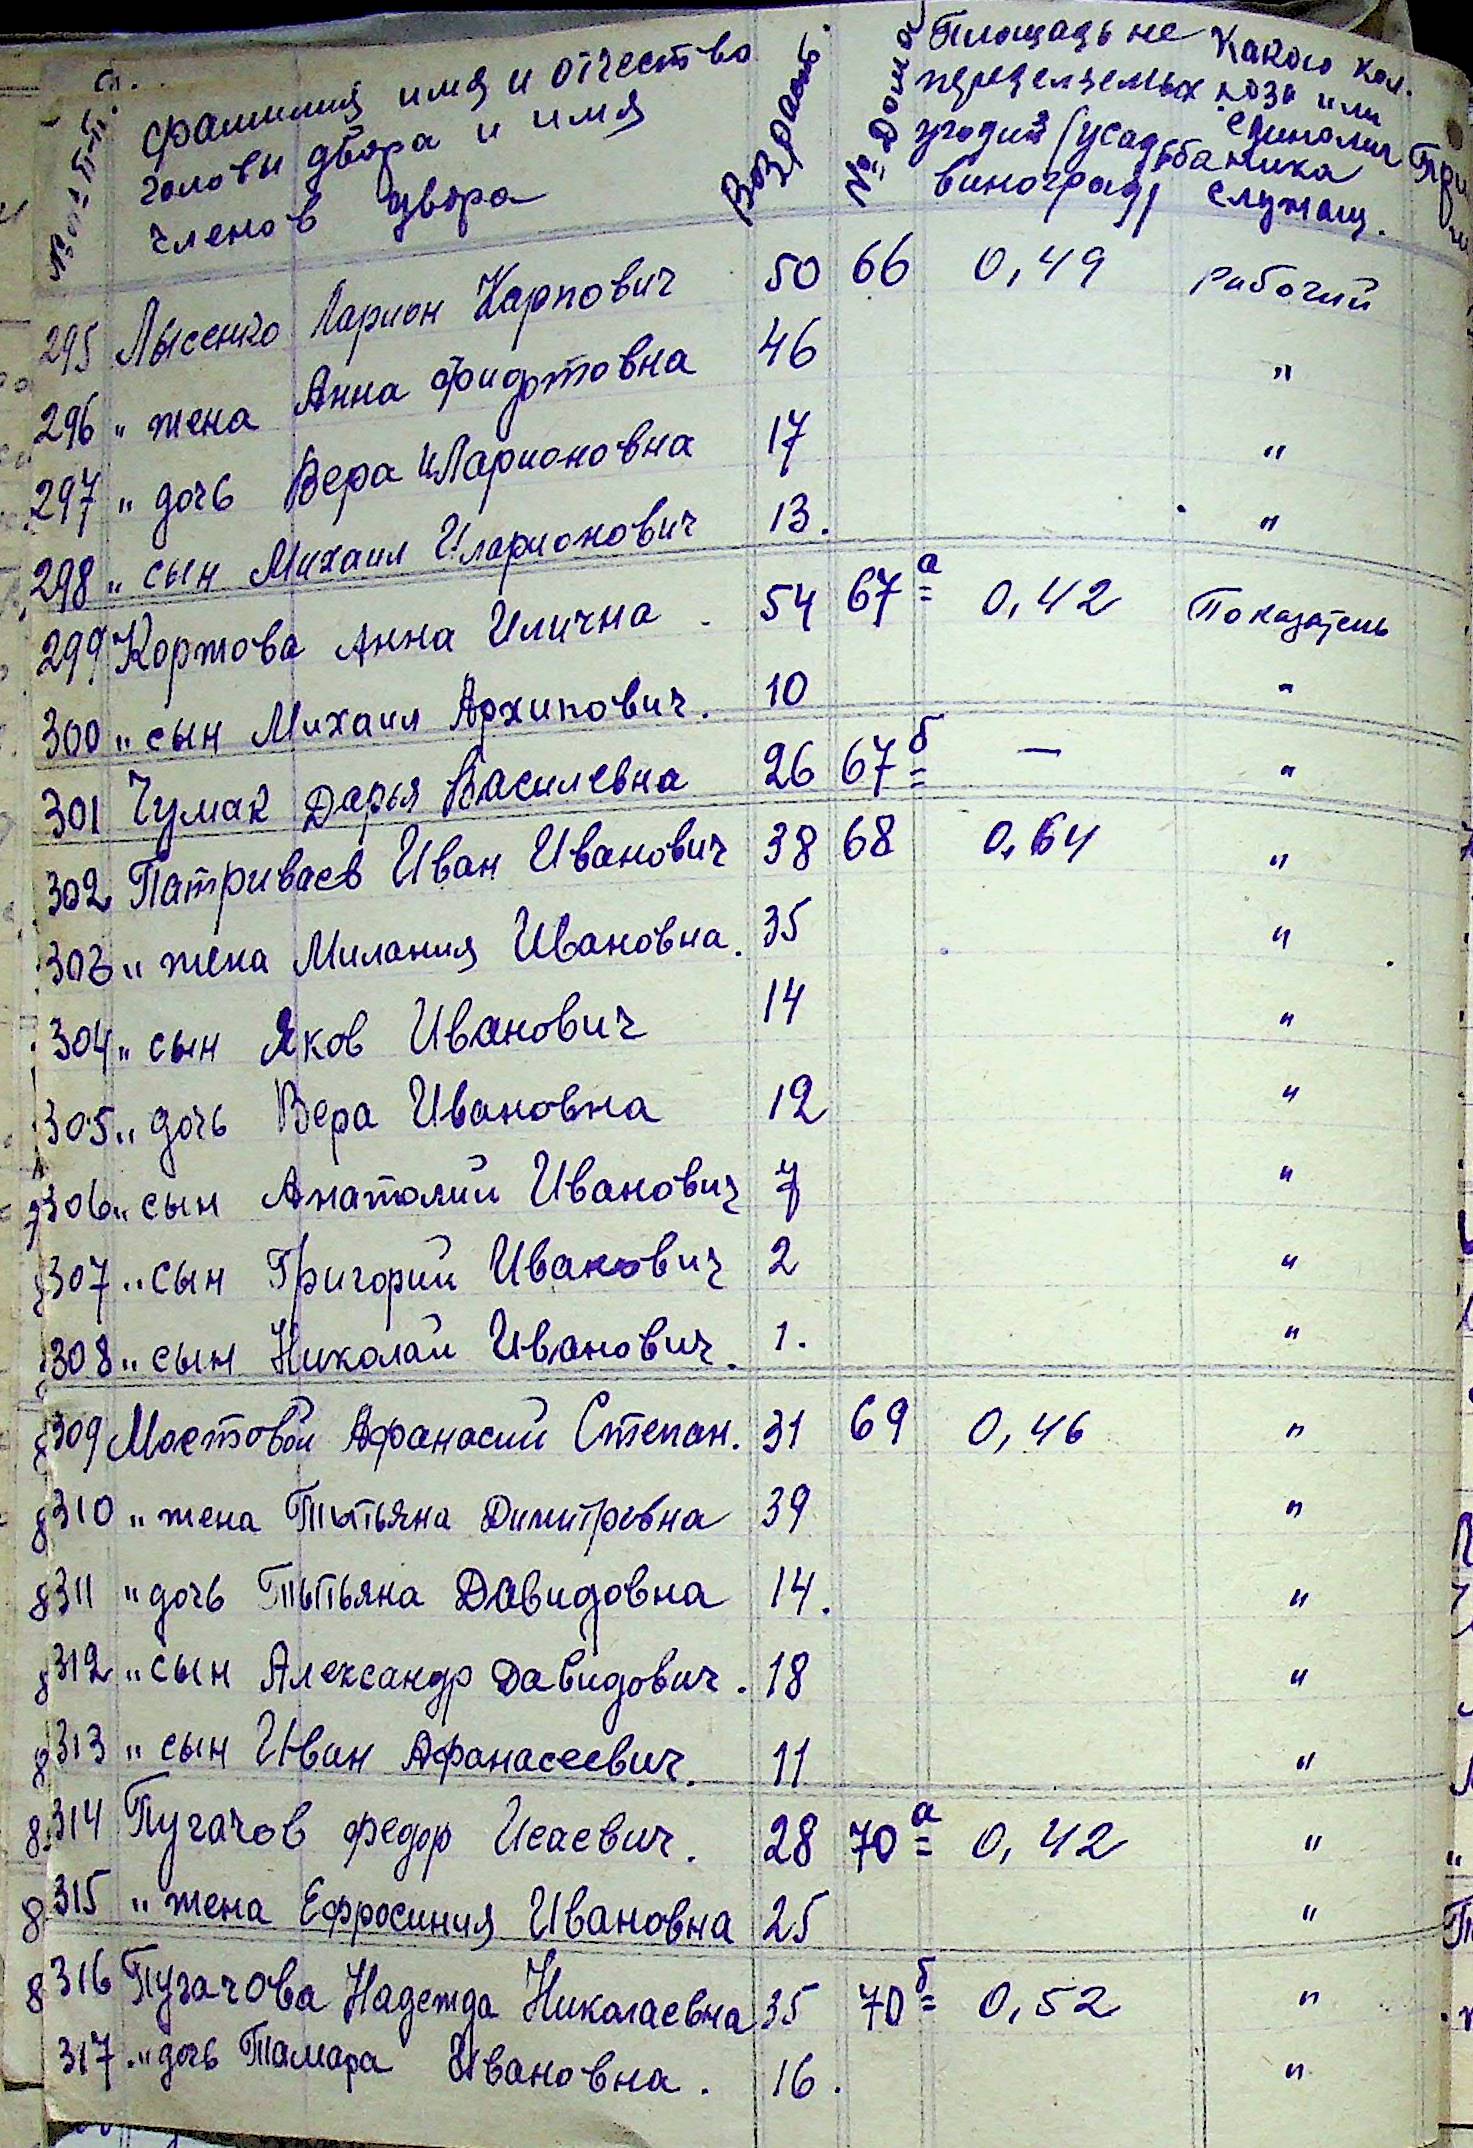 фамилия имя и отчество Возраст № Дома Площадь не Какого кол.
головы двора и имя переделяемых хоза или
членов двора угодий (усадьба единолич
виноград) ника
служащ.
295 Лысенко Ларион Карпович 50 66 0,49 рабочий
296 " жена Анна Фидотовна 46 "
297 " дочь Вера Иларионовна 17 "
298 " сын Михаил Иларионович 13. "
299 Коржова Анна Илична. 54 67а 0,42 Показатель
300 " сын Михаил Архипович. 10 "
301 Чумак Дарья Василевна 26 67б — "
302 Патриваев Иван Иванович 38 68 0,64 "
303 " жена Милания Ивановна. 35 "
304 " сын Яков Иванович 14 "
305 " дочь Вера Ивановна 12 "
306 " сын Анатолий Иванович 7 "
307 " сын Григорий Иванович 2 "
308 " сын Николай Иванович. 1. "
309 Мостовой Афанасий Степан. 31 69 0,46 "
310 " жена Татьяна Димитровна 39 "
311 " дочь Татьяна Давидовна 14. "
312 " сын Александр Давидович. 18 "
313 " сын Иван Афанасеевич. 11 "
314 Пугачов Федор Исаевич. 28 70а 0,42 "
315 " жена Ефросиния Ивановна 25 "
316 Пугачова Надежда Николаевна 35 70б 0,52 "
317 " дочь Тамара Ивановна. 16. "